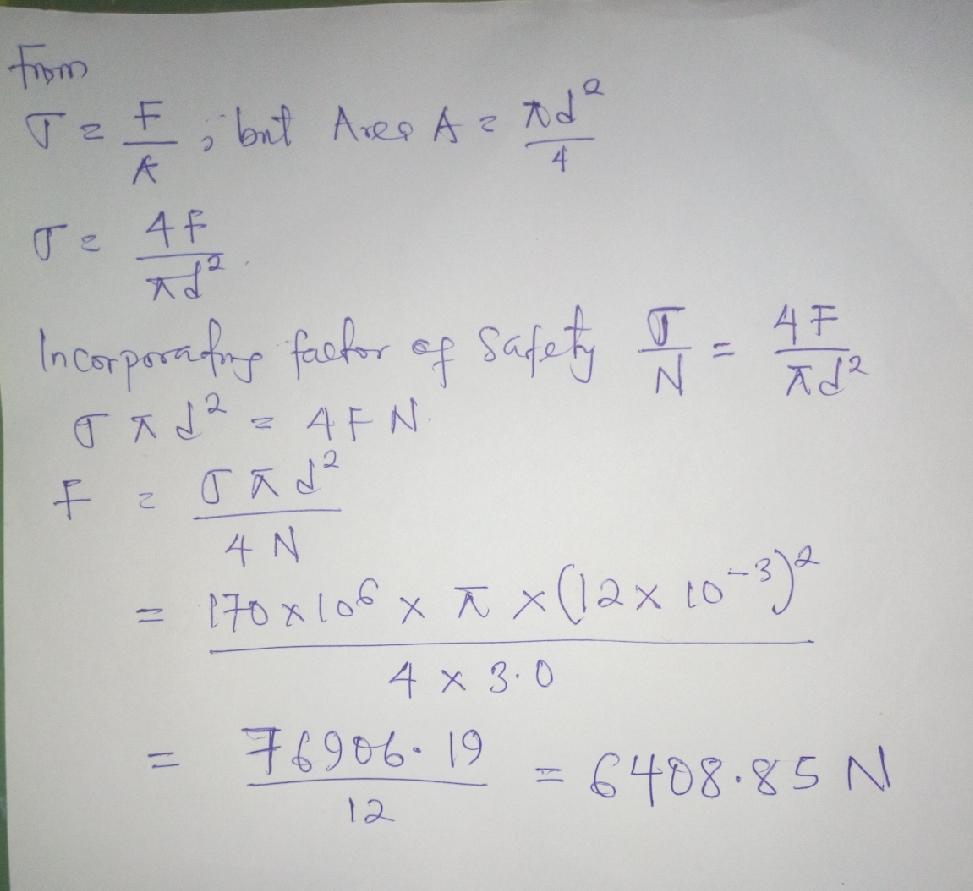 From
σ = F/A ; but Area A = πd²/4
σ = 4F/πd².
Incorporating factor of Safety σ/N = 4F/πd²
σπd² = 4FN
F = σπd²/4N
= 170 x 10⁶ x π x (12 x 10⁻³)²/4 x 3.0
= 76906.19/12 = 6408.85 N